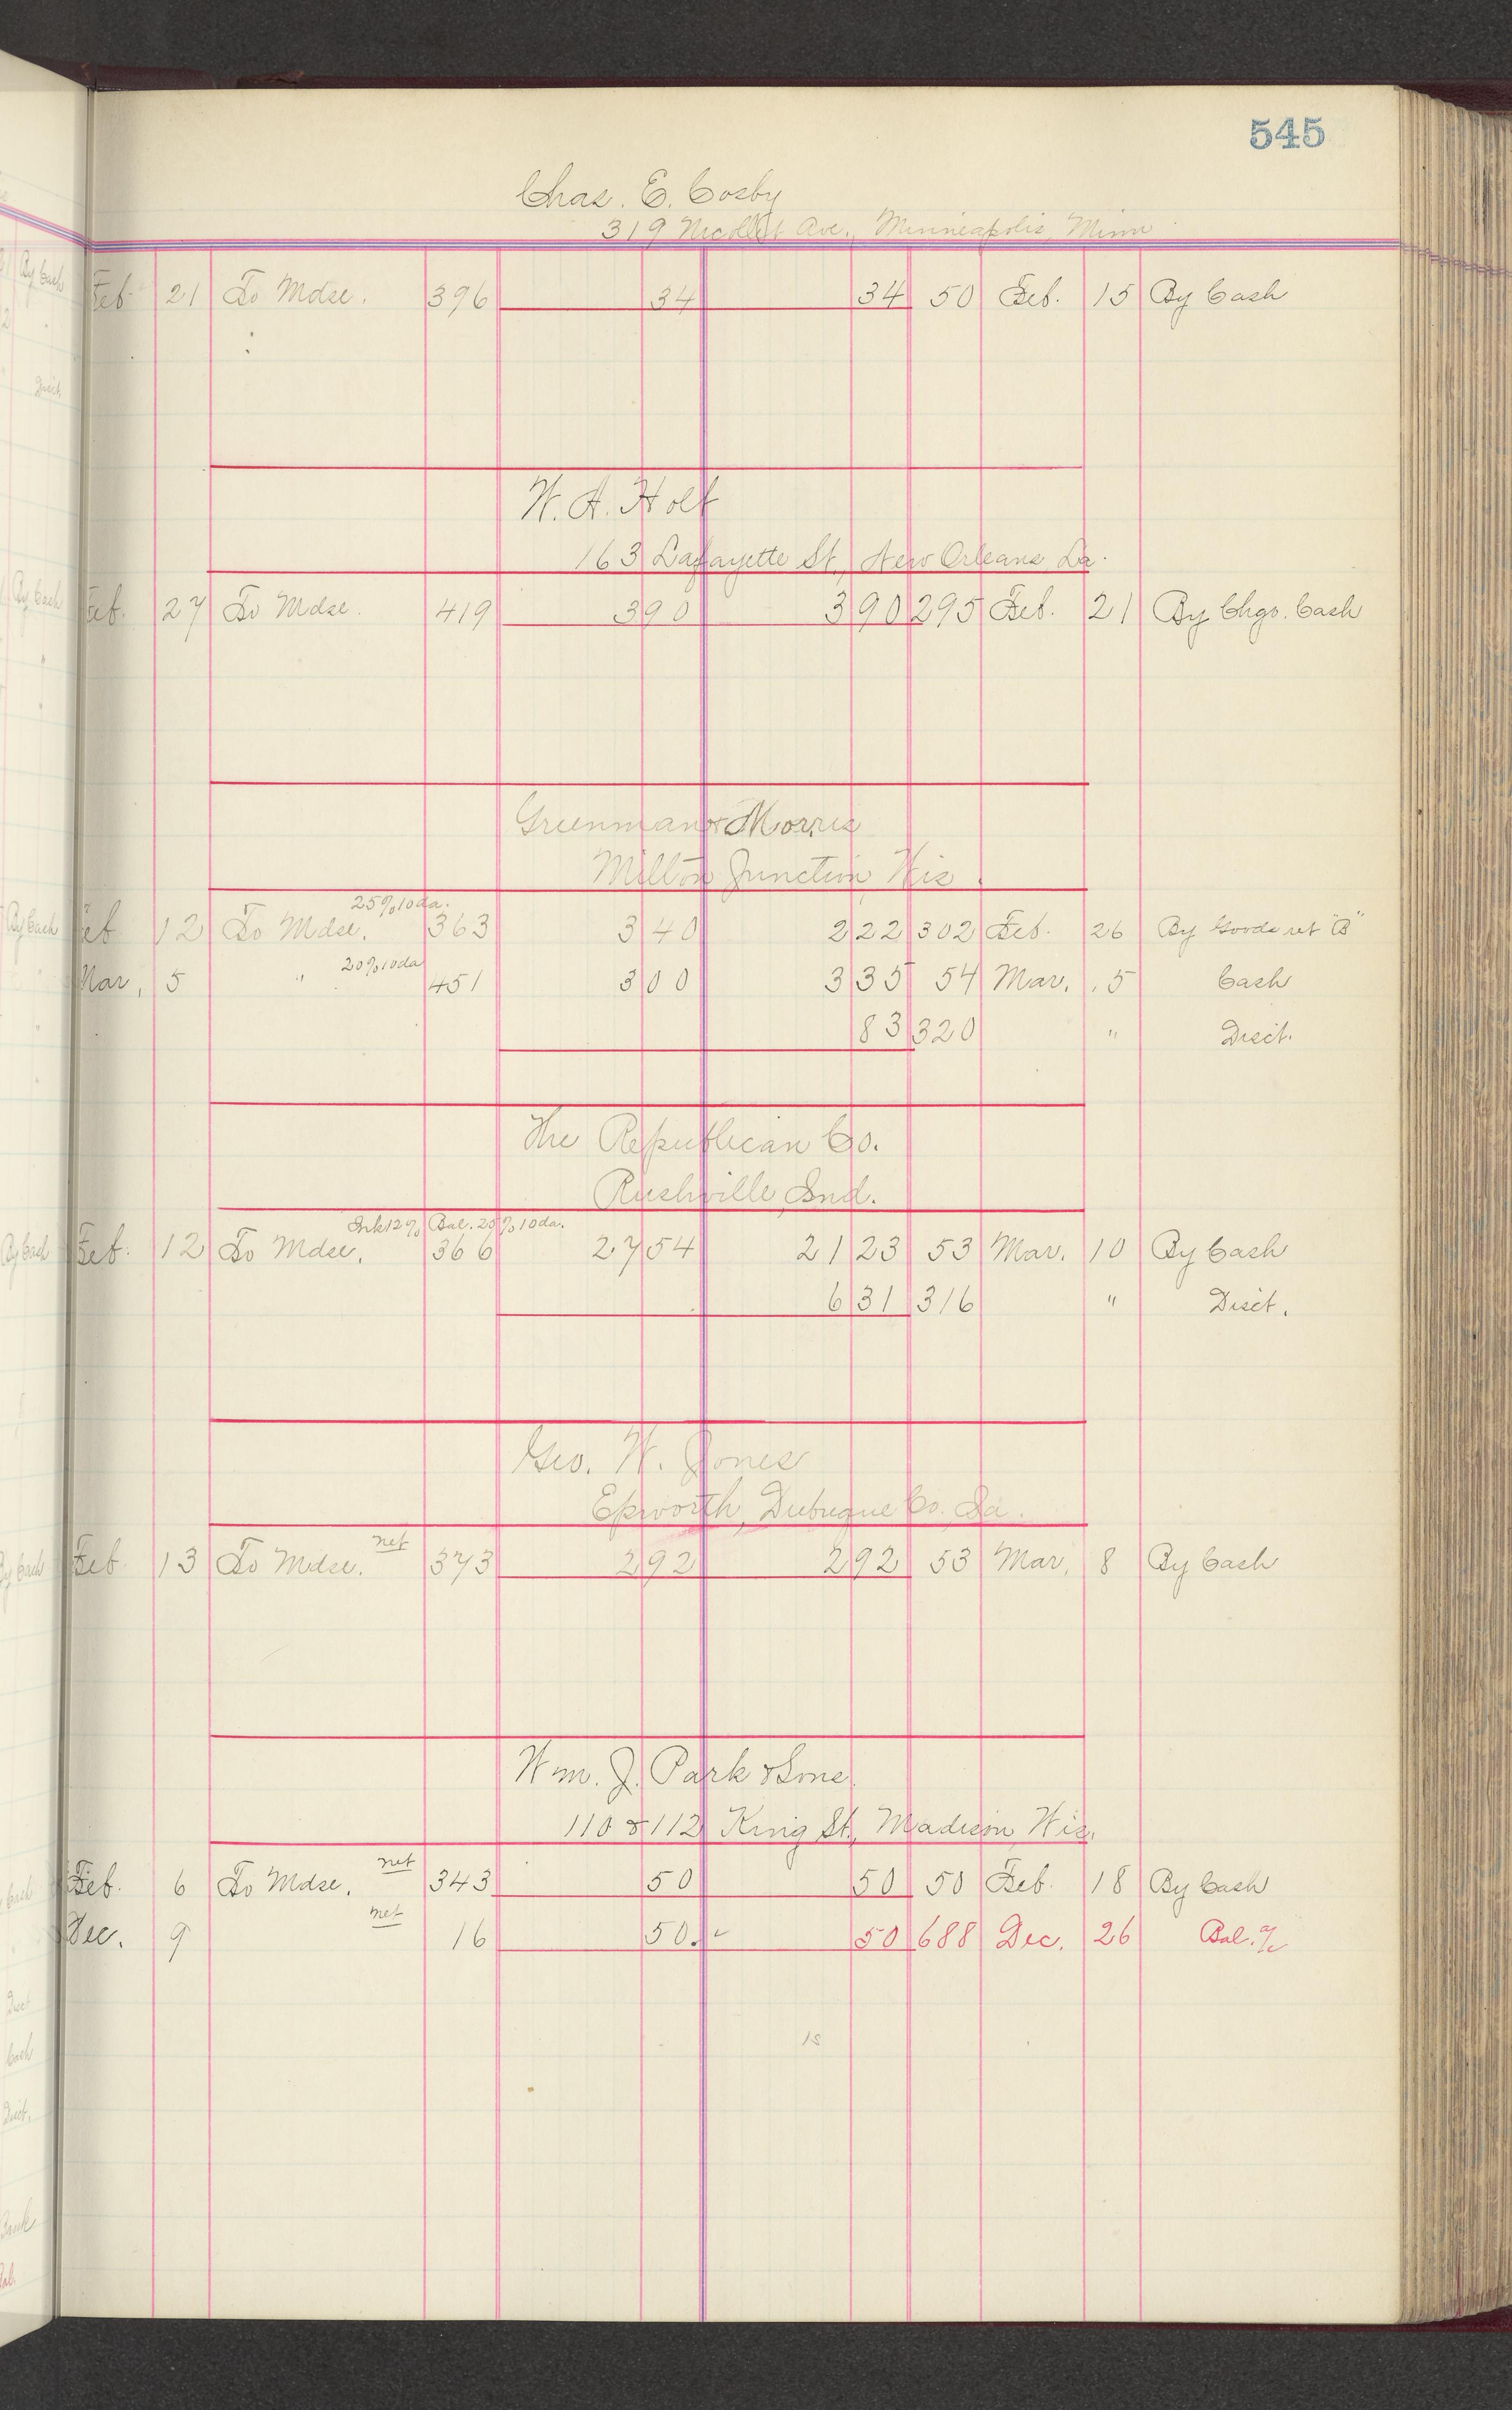 545
Chas. E. Cosby
319 Nicollet Ave., Minneapolis, Minn
Feb. 21 To Mdse. 396 34 34 50 Feb. 15 By Cash
W. A. Holt
163 Lafayette St., New Orleans La.
Feb. 27 To Mdse. 419 3 90 3 90 295 Feb. 21 By Chgo. Cash
Greenman & Morris
Milton Junction, Wis.
25% 10 da.
Feb 12 To Mdse. 363 3 40 2 22 302 Feb. 26 By Goods ret "B"
20% 10 da
Mar. 5 " 451 3 00 3 35 54 Mar. 5 Cash
83 320 " Disct.
The Republican Co.
Rushville, Ind.
Ink 12% Bal. 25% 10 da.
Feb. 12 To Mdse. 366 27 54 21 23 53 Mar. 10 By Cash
6 31 316 " Disct.
Geo. W. Jones
Epworth, Dubuque Co. Ia.
net
Feb. 13 To Mdse. 373 2 92 2 92 53 Mar. 8 By Cash
Wm. J. Park & Sons
110 & 112 King St., Madison, Wis.
net
Feb. 6 To Mdse. 343 50 50 50 Feb. 18 By Cash
net
Dec. 9 16 50. ✓ 50 688 Dec. 26 Bal. a/c
18